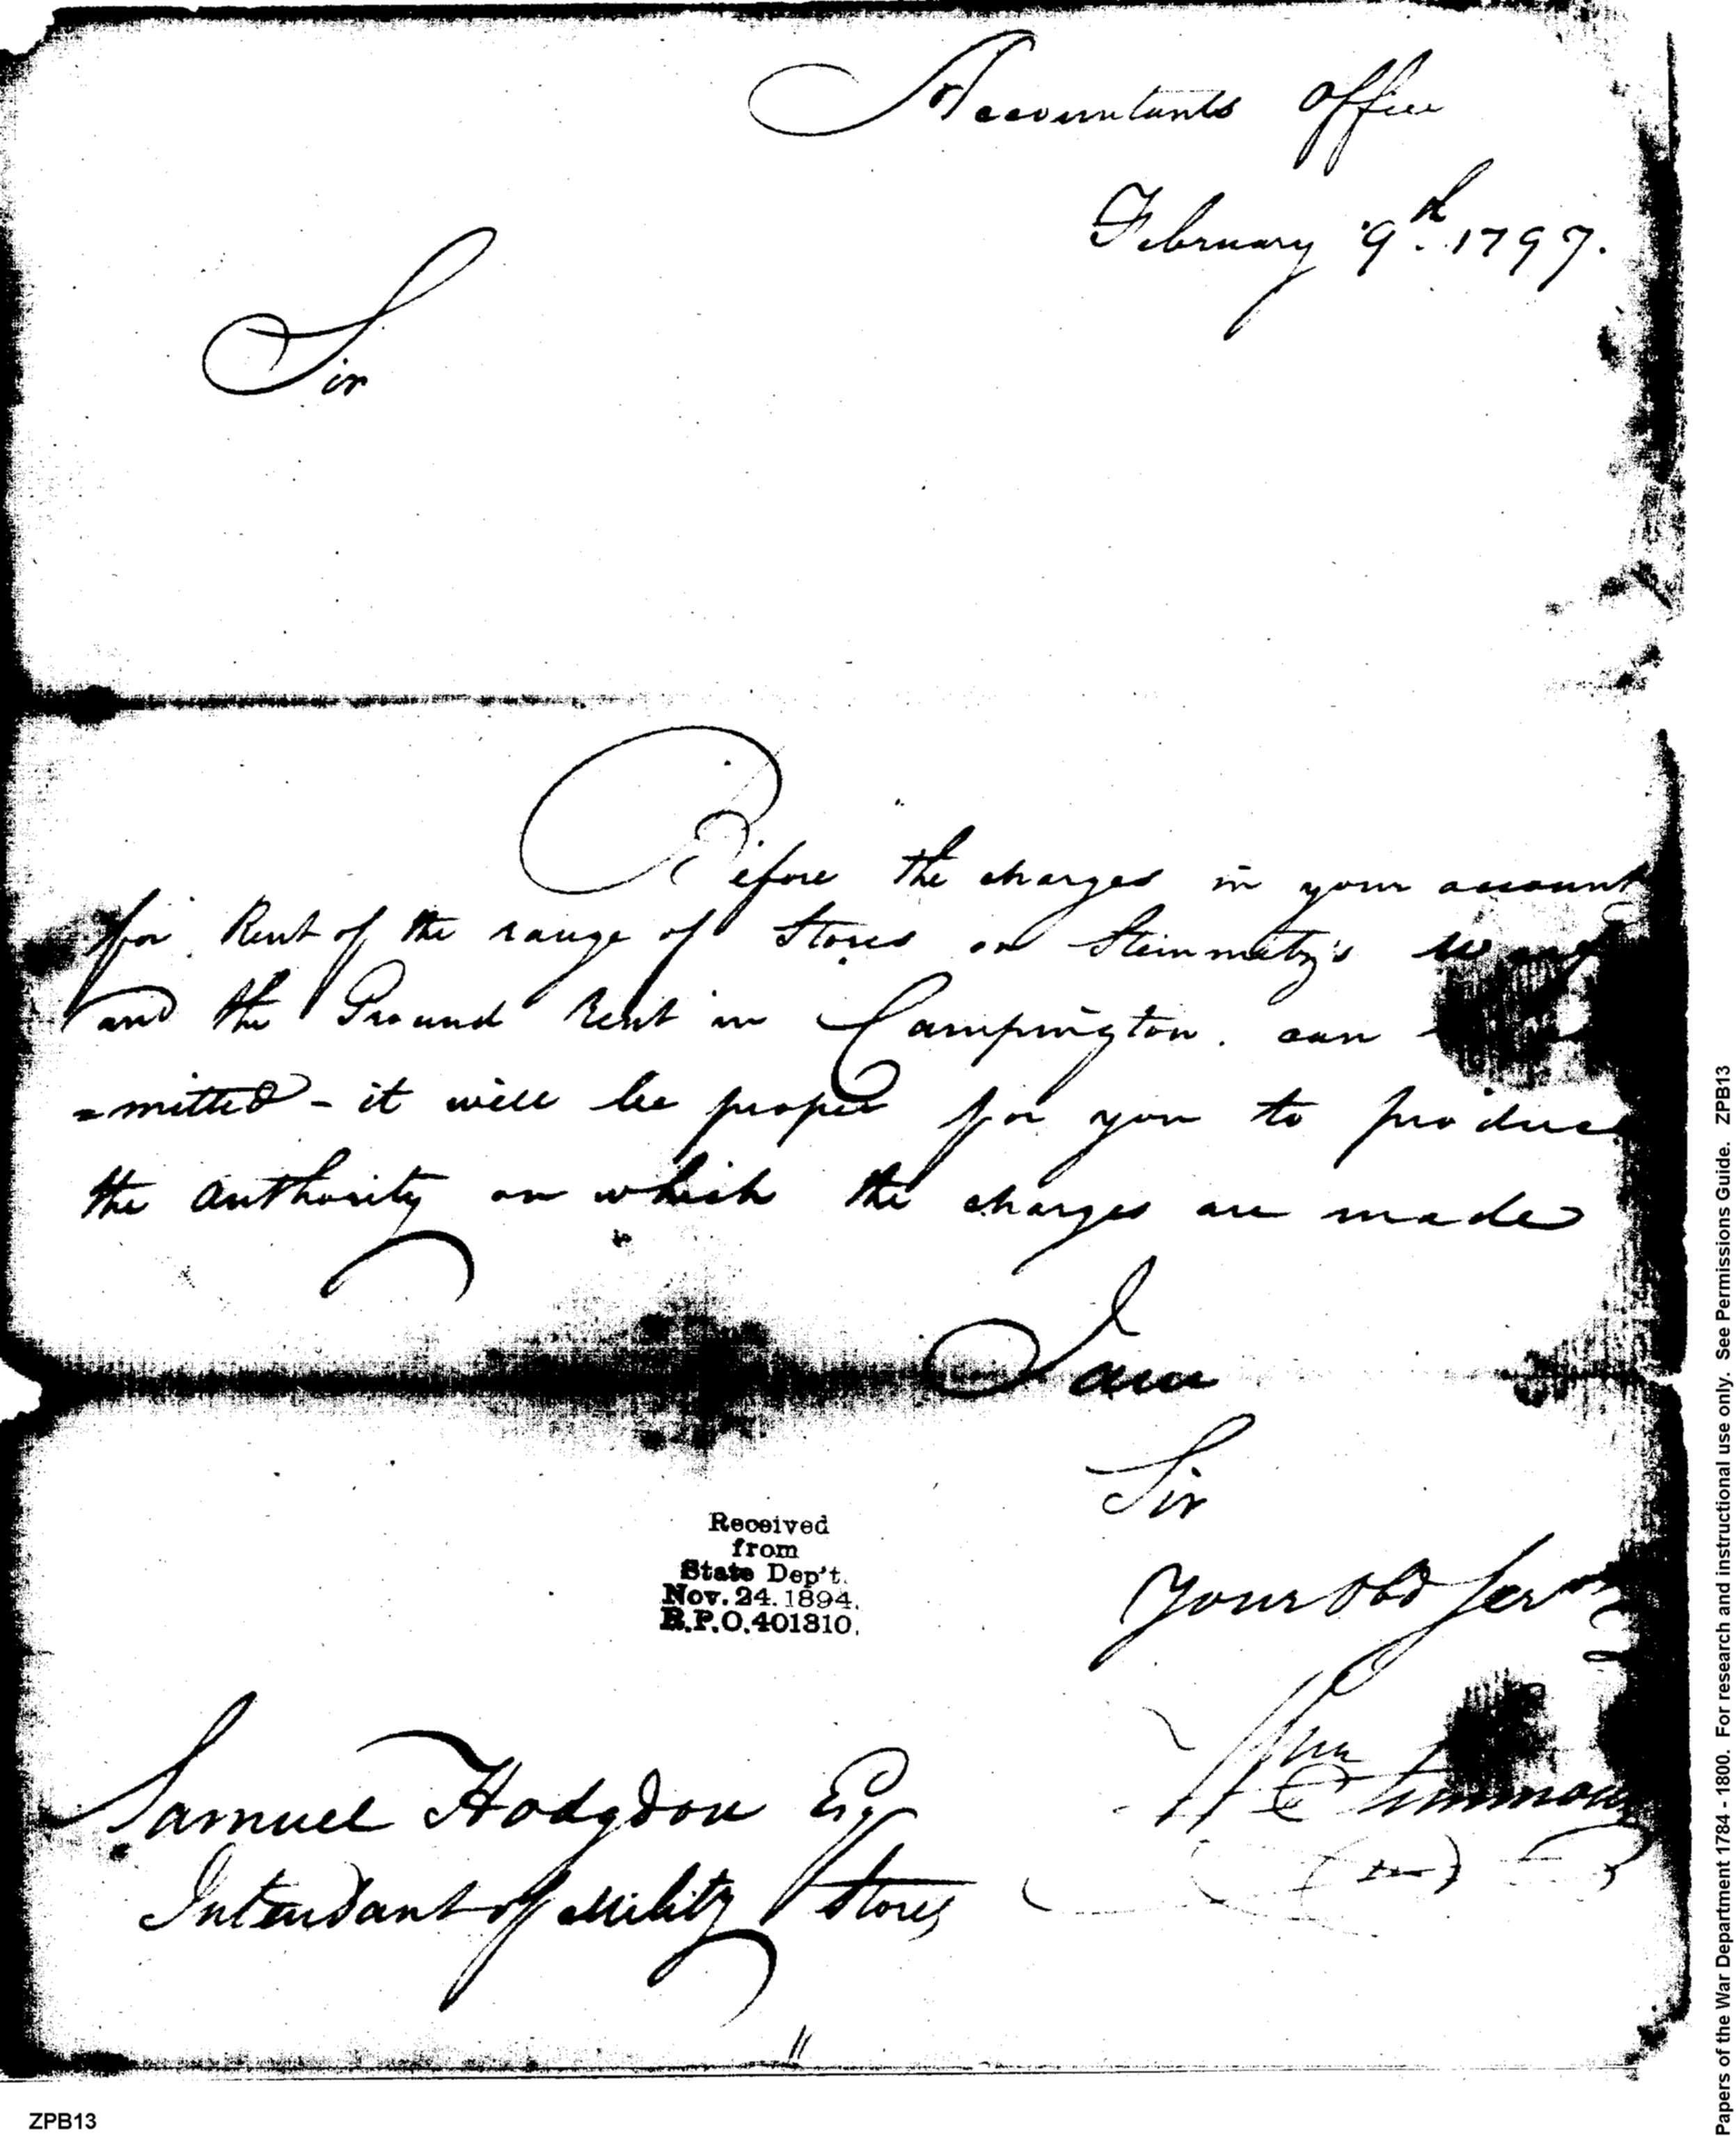 Accountants Office
February 9th. 1797.
Sir
Before the charges in your account
for Rent of the range of Stores on Steinmetz's
and the Ground Rent in Campington. can
=mitted - it will be proper for you to produce
the authority on which the charges are made
I am
Sir
Your Obd Serv
Wm Simmons
Received
from
State Dep't.
Nov. 24. 1894.
R.P.O. 401310.
Samuel Hodgdon Esqr
Intendant of Mility Stores
ZPB13
Papers of the War Department 1784 - 1800. For research and instructional use only. See Permissions Guide. ZPB13